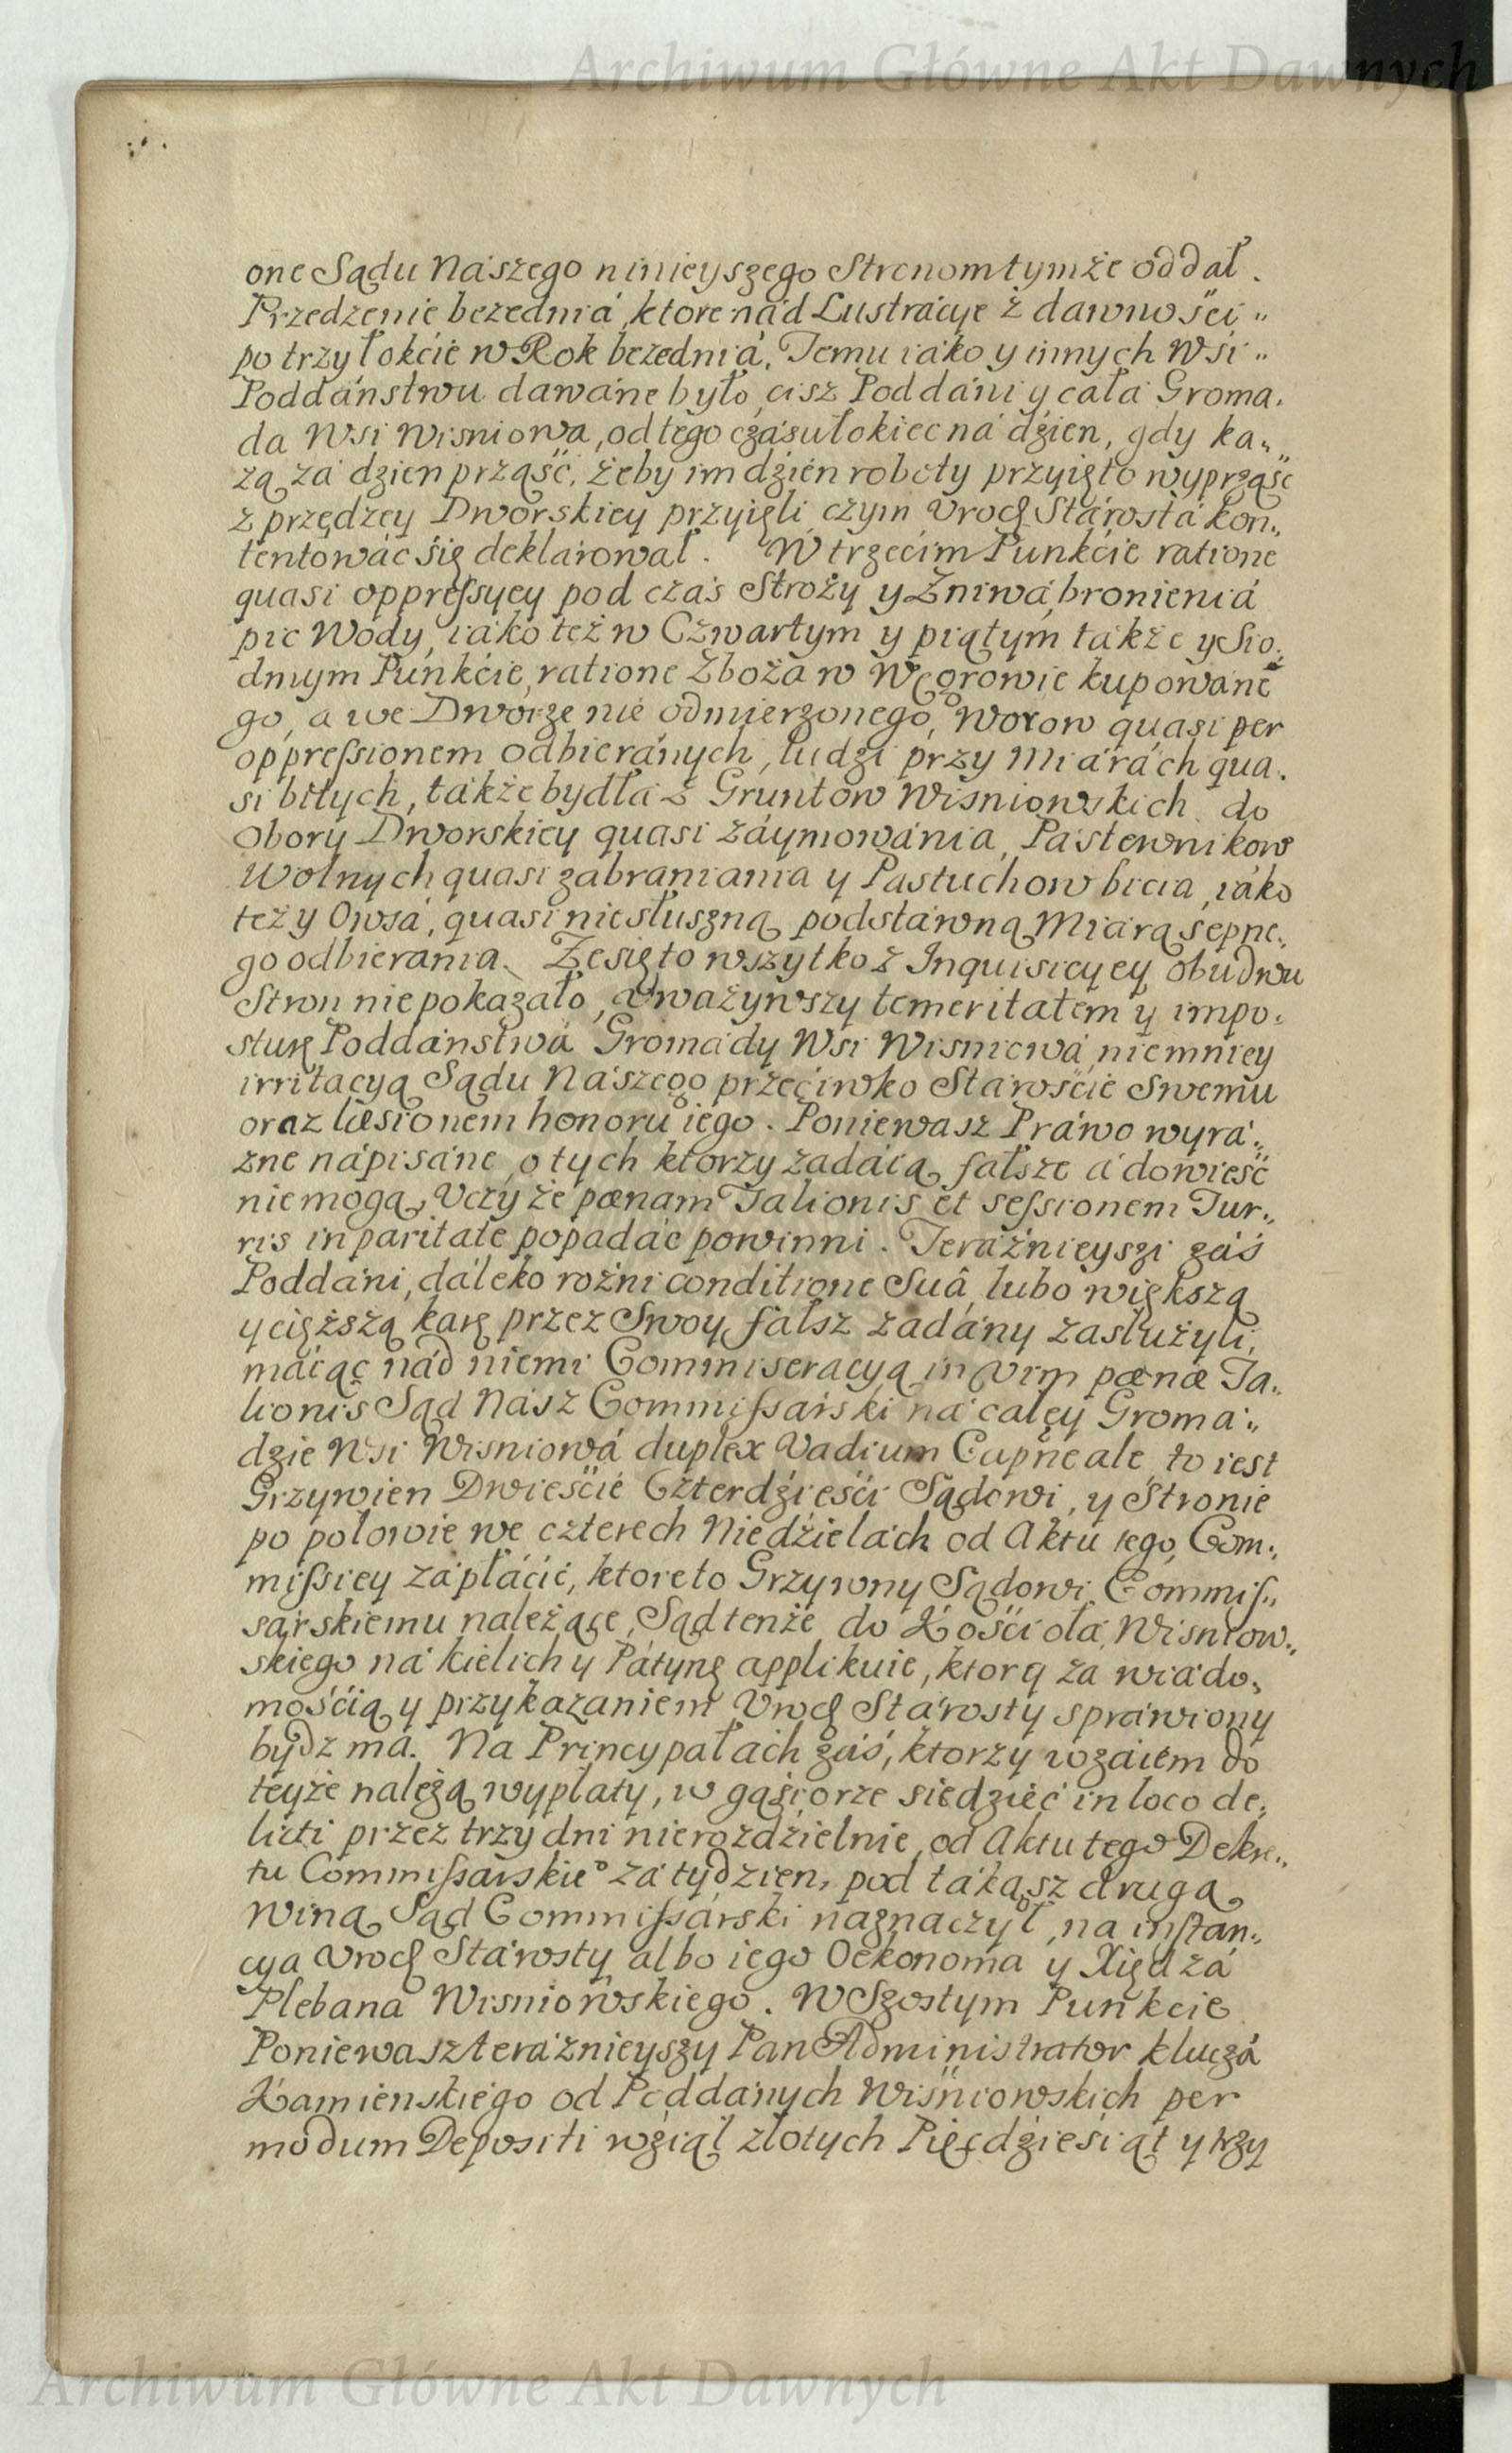 Archiwum Główne Akt Dawnych
one Sądu Nászego ninieyszego Stronom tymże oddał.
Przedzenie bezedniá, ktore nád Lustrácye z dawnośći„
po trzy łokćie w Rok bezedniá. Temu iáko y innych Wsi„
Poddáństwu dawáne było, cisz Poddáni y cáła Groma,
da Wsi Wisniowa, od tego czásu łokiec ná dzien, gdy ka„
zą zá dzien prząśč, żeby im dźień roboty przyięto wyprząść
z przędzey Dworskiey przyięli czym Urodz Stárostá kon„
tentowáć się deklárował. W trzecim Punkćie ratione
quasi oppreſsyey pod czás Stroży y Żniwá, bronieniá
pic Wody, iáko też w Czwartym y piątym tákże y Sio„
dmym Punkćie, ratione Zbożá w Węgrowie kupowáne
go, á we Dworze nie odmierzonego, Worow quasi per
oppreſsionem odbieránych, ludzi przy Miárách qua„
si bitych, tákże bydłá z Gruntow Wisniowskich do
Obory Dworskiey quasi záymowánia, Pástewnikow
Wolnych quasi zabraniania y Pastuchow bicia, iáko
też y Owsá, quasi niesłuszną podstáwną Miárą sepne„
go odbierania. Że się to wszytko z Inquisicyey obudwu
Stron nie pokazało, uważywszy temeritatem y impo„
sturę Poddáństwá Gromády Wsi Wisniowá, niemniey
irritacyą Sądu Nászego przećiwko Stárośćie Swemu
oraz læsionem honoru iego. Poniewasz Práwo wyrá„
zne nápisáne o tych ktorzy zadáią fałsze á dowieść
nie mogą, Uczy że pœnam Talionis et seſsionem Tur„
ris in paritate popadáć powinni. Teráźnieyszi záś
Poddáni, dáleko rożni conditione Suâ, lubo większą
y cięższą karę przez Swoy fałsz zadány zasłużyli,
máiąc nád niemi Commiseracyą in vim pœnæ Ta„
lionis Sąd Nász Commiſsárski ná cáłęy Gromá„
dzie Wsi Wisniowá duplex Vadium Capneale to iest
Grzywien Dwieśćie Czterdźieśći Sądowi, y Stronie
po polowie we czterech Niedźielách od Aktu tego Com„
miſsiey zápłáćić, ktore to Grzywny Sądowi Commiſ„
sárskiemu należące, Sąd tenże do Kośćioła Wisniow„
skiego ná kielich y Pátynę applikuie, ktorą za wiádo„
mośćią y przykazaniem Urodz Stárosty spráwiony
bydz ma. Na Princypałach záś, ktorzy wzaiem do
teyże należą wypłaty, w gąśiorze siedźieć in loco de„
licti przez trzy dni nierozdźielnie, od Aktu tego Dekre„
tu Commiſsárskieo zá tydzien, pod tákąsz drugą
winą Sąd Commiſsárski náznaczył, na inſtan„
cya Urodz Stárosty albo iego Oekonoma y Xiędzá
Plebana Wisniowskiego. W Szostym Punkcie
Poniewasz teráźnieyszy Pan Administrator kluczá
Kamieńskiego od Poddánych Wiśniowskich per
modum Depositi wźiął złotych Pięćdźieśiąt y trzy
Archiwum Główne Akt Dawnych